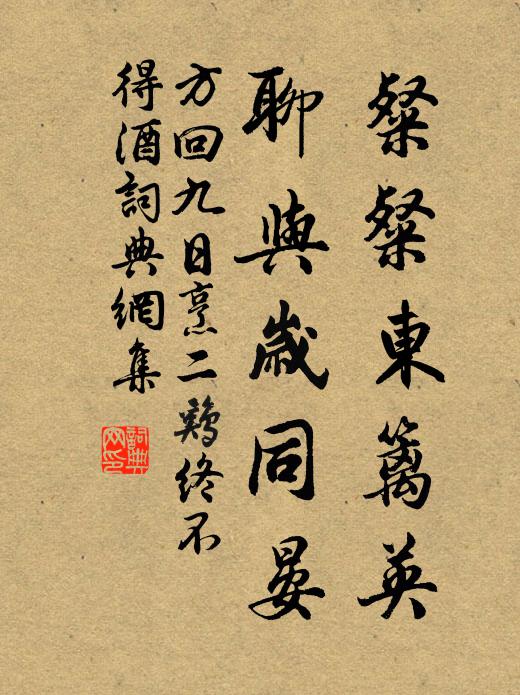 粲粲東籬英
聊與歲同晏
方回九日烹二鷄終不
得酒詞典網集
詞典
网印